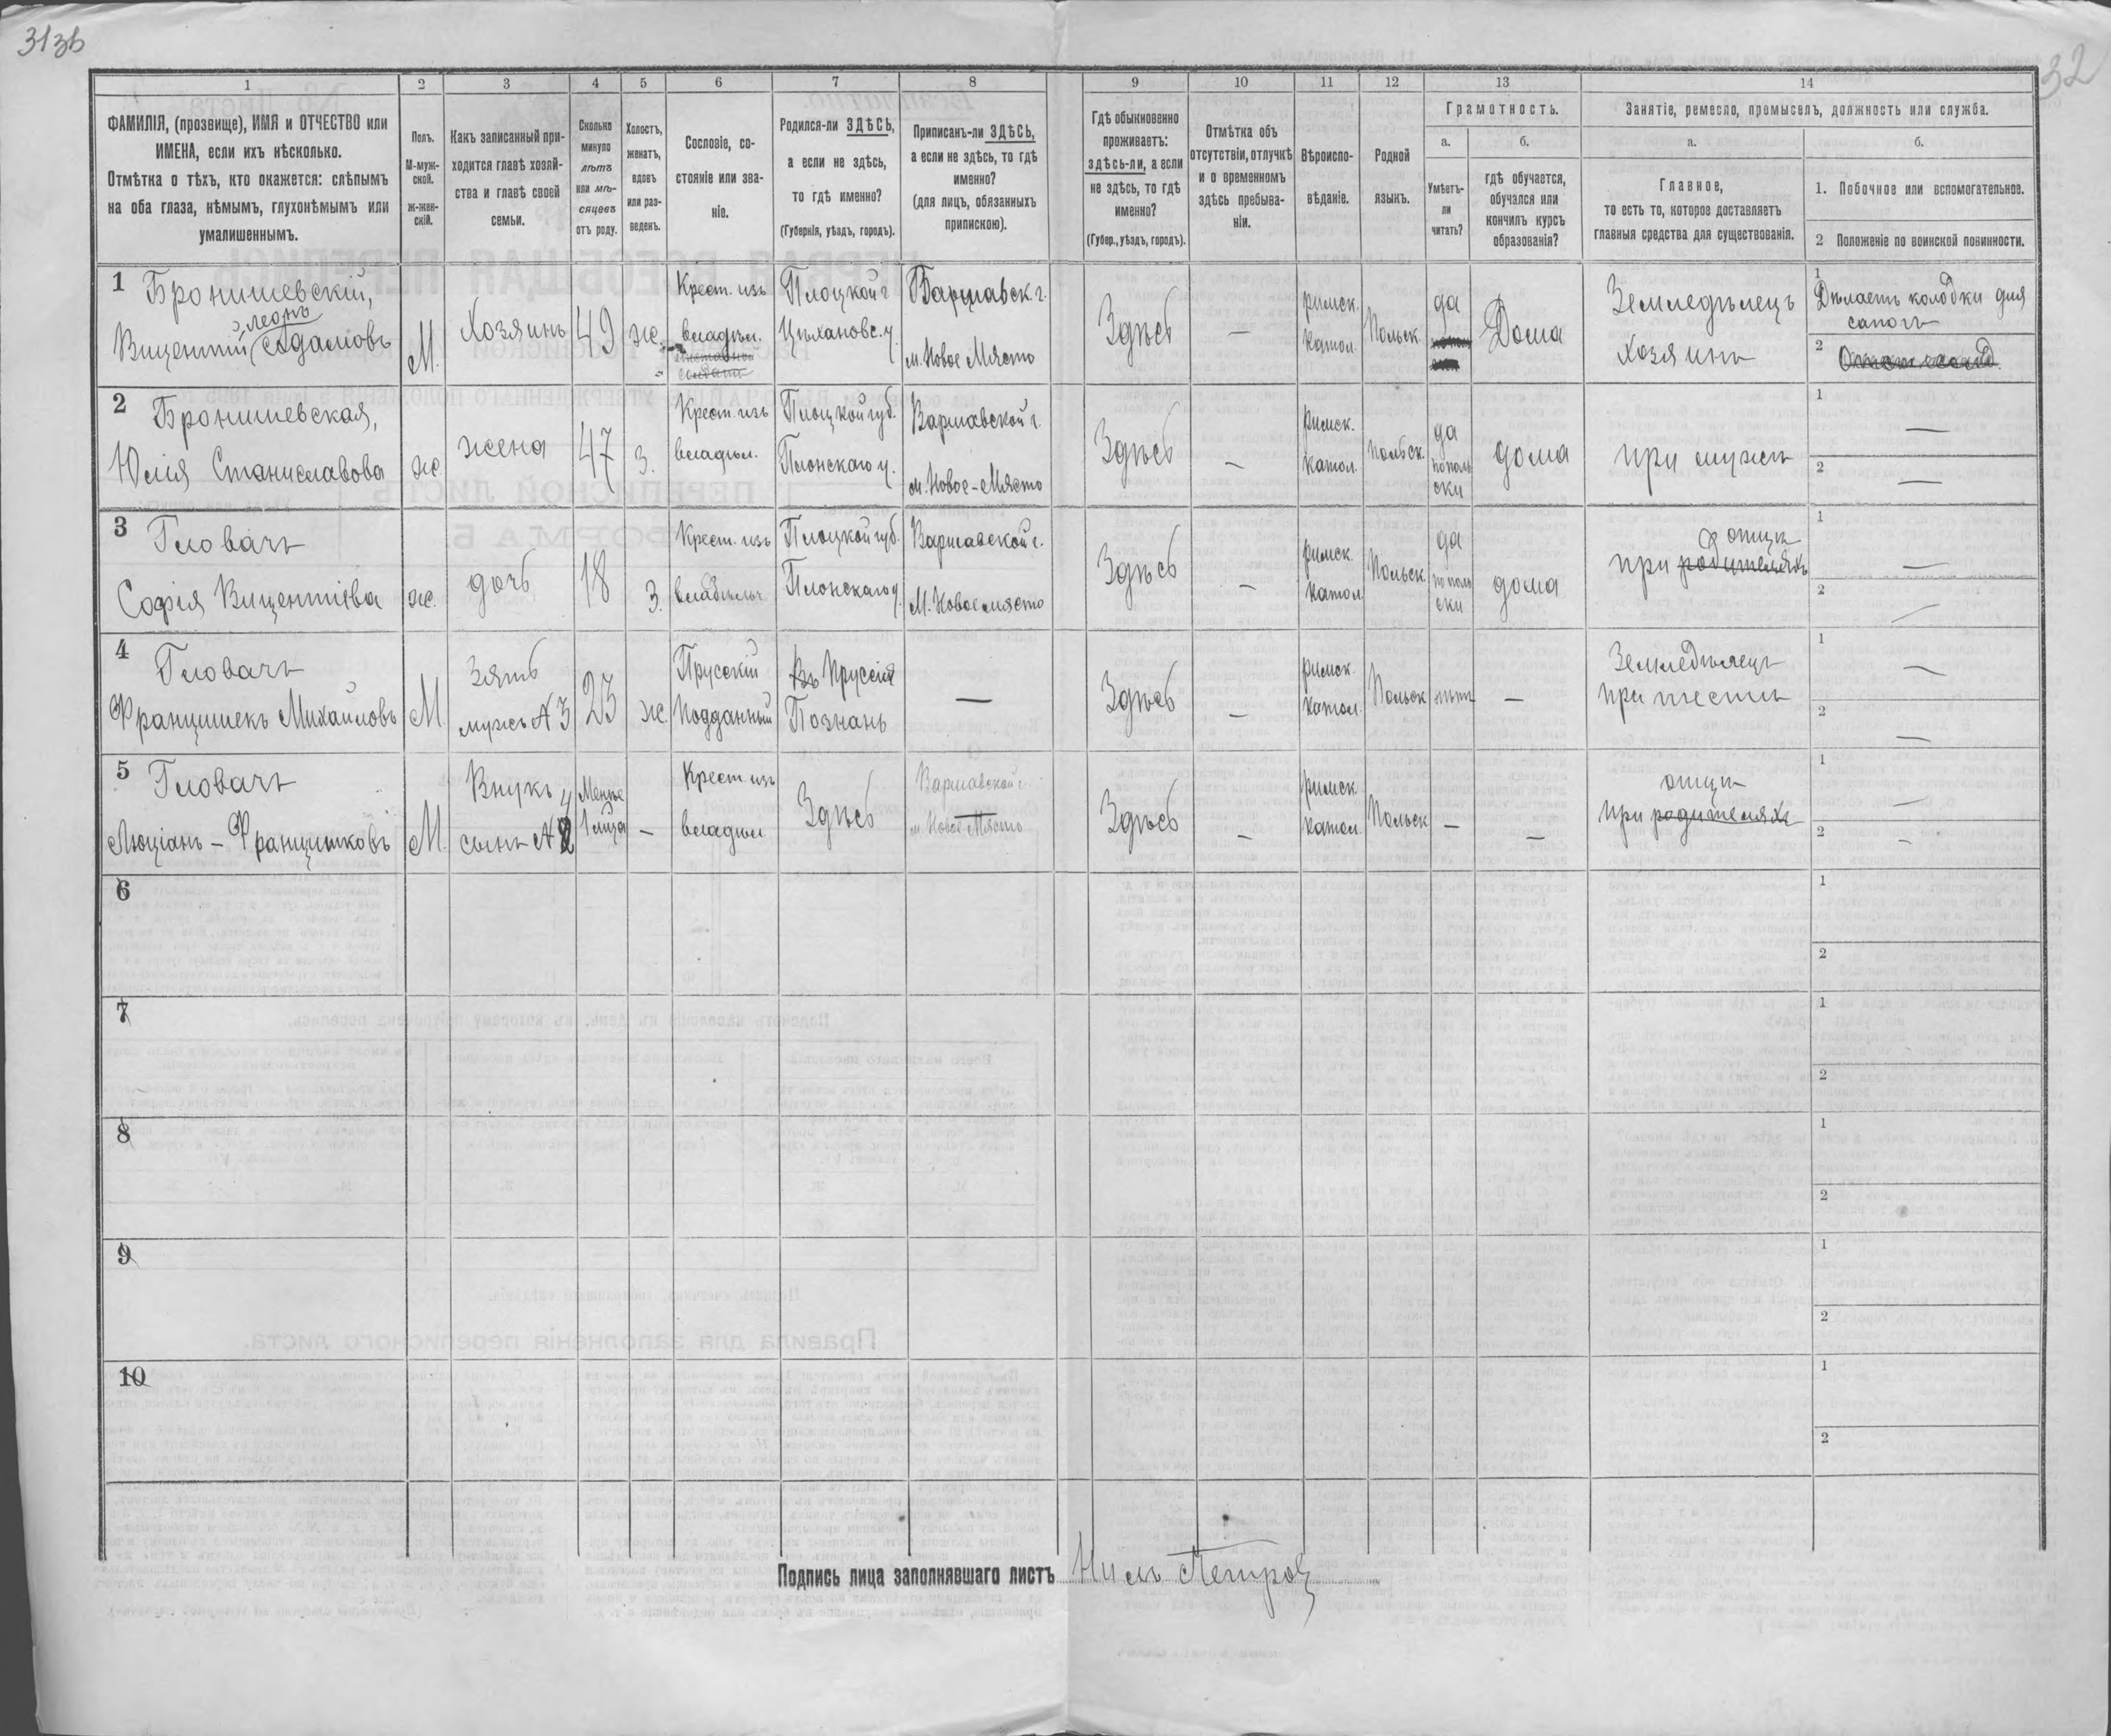 313б
32
1
2
3
4
5
6
7
8
9
10
11
12
13
14
ФАМИЛІЯ, (прозвище), ИМЯ и ОТЧЕСТВО или
ИМЕНА, если ихъ нѣсколько.
Отмѣтка о тѣхъ, кто окажется: слѣпымъ
на оба глаза, нѣмымъ, глухонѣмымъ или
умалишеннымъ.
Полъ.
М-муж-
ской.
ж-жен-
скій.
Какъ записанный при-
ходится главѣ хозяй-
ства и главѣ своей
семьи.
Сколько
минуло
лѣтъ
или мѣ-
сяцевъ
отъ роду.
Холостъ,
женатъ,
вдовъ
или раз-
веденъ.
Сословіе, со-
стояніе или зва-
ніе.
Родился-ли ЗДѢСЬ,
а если не здѣсь,
то гдѣ именно?
(Губернія, уѣздъ, городъ).
Приписанъ-ли ЗДѢСЬ,
а если не здѣсь, то гдѣ
именно?
(для лицъ, обязанныхъ
припискою).
Гдѣ обыкновенно
проживаетъ:
здѣсь-ли, а если
не здѣсь, то гдѣ
именно?
(Губер., уѣздъ, городъ).
Отмѣтка объ
отсутствіи, отлучкѣ
и о временномъ
здѣсь пребыва-
ніи.
Вѣроиспо-
вѣданіе.
Родной
языкъ.
Грамотность.
а.
Умѣетъ-
ли
читать?
б.
гдѣ обучается,
обучался или
кончилъ курсъ
образованія?
Занятіе, ремесло, промыселъ, должность или служба.
а.
Главное,
то есть то, которое доставляетъ
главныя средства для существованія.
б.
1. Побочное или вспомогательное.
2 Положеніе по воинской повинности.
1 Бронишевскій,
Леонъ
Вицентій Адамовъ
М.
Хозяинъ
49
ж.
Крест. изъ
владѣл.
Плоцкой г
Цѣхановс. у.
Варшавск. г.
м. Новое Място
Здѣсь
—
римск.
катол.
Польск.
да
Дома
Земледѣлецъ
Хозяинъ
1
Дѣлаетъ колодки для
сапогъ
2
2 Бронишевская,
Юлія Станиславова
ж
жена
47
з.
Крест. изъ
владѣл.
Плоцкой губ.
Плонскаго у.
Варшавской г.
м. Новое-Място
Здѣсь
—
римск.
катол.
Польск.
да
по поль
ски
дома
при мужѣ
1
—
2
—
3 Гловачъ
Софія Вицентіева
ж.
дочь
18
З.
Крест. изъ
владѣльч
Плоцкой губ.
Плонскаго у
Варшавской г.
М. Новое място
Здѣсь
—
римск
катол
Польск
да
по поль
ски
дома
отцѣ
при родителяхъ
1
—
2
—
4 Гловачъ
Францишекъ Михайловъ
М
Зять
мужъ №3
23
ж.
Прусскій
подданный
Въ Пруссіи
Познань
—
Здѣсь
—
римск
катол.
Польск
нѣтъ
—
Земледѣлецъ
при тестѣ
1
—
2
—
5 Гловачъ
Люціанъ - Францишковъ
М.
Внукъ и
сынъ №
Менѣе
1 мѣсца
—
Крест изъ
владѣл
Здѣсь
Варшавской г.
м. Новое Място
Здѣсь
—
римск
катол.
Польск
—
—
отцѣ
при родителяхъ
1
—
2
—
6
1
2
7
1
2
8
1
2
9
1
2
10
1
2
Подпись лица заполнявшаго листъ Нилъ Петровъ